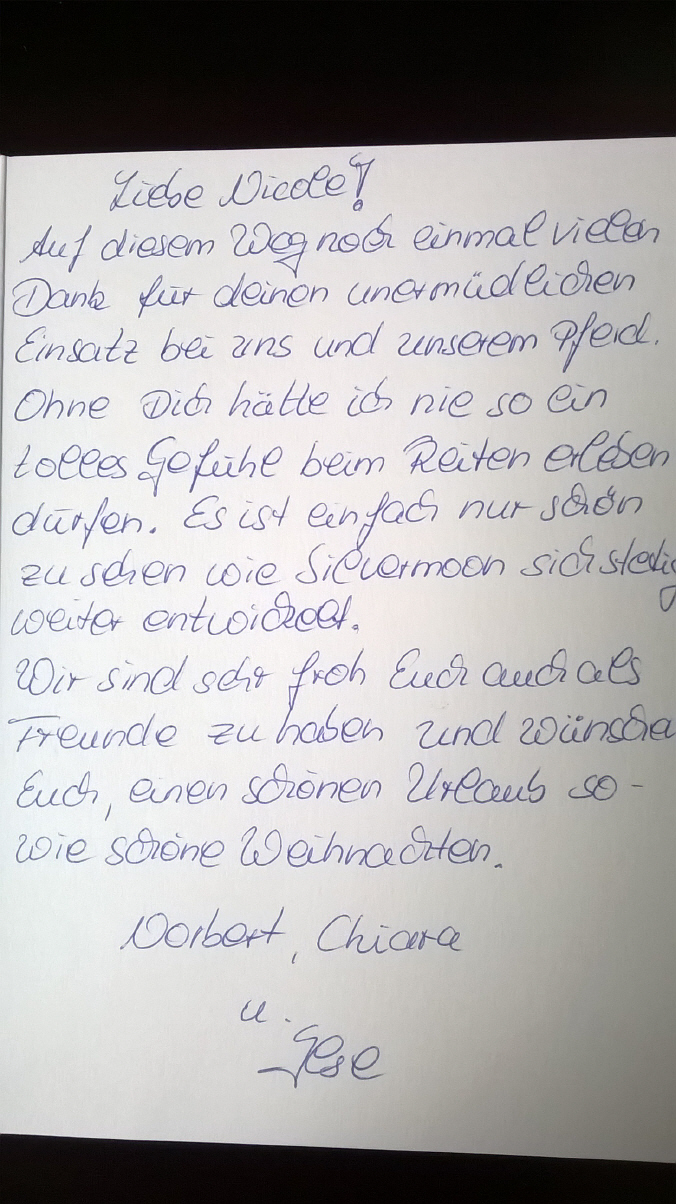 Liebe Nicole!
Auf diesem Weg noch einmal vielen
Dank für deinen unermüdlichen
Einsatz bei uns und unserem Pferd.
Ohne Dich hätte ich nie so ein
tolles Gefühl beim Reiten erleben
dürfen. Es ist einfach nur schön
zu sehen wie Silvermoon sich stetig
weiter entwickelt.
Wir sind sehr froh Euch auch als
Freunde zu haben und wünsche
Euch, einen schönen Urlaub so-
wie schöne Weihnachten.
Norbert, Chiara
u.